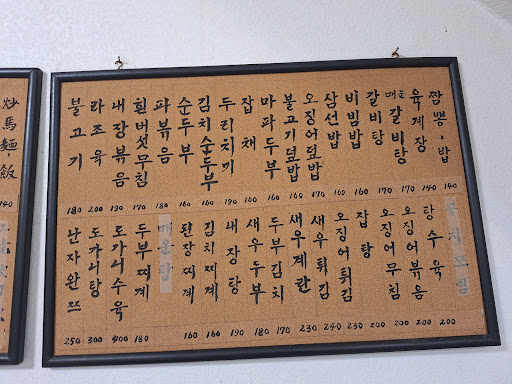 짬뽕,밥 140
육계장
매운갈비탕 170
갈비탕 170
비빔밥 160
삼선밥 160
오징어덮밥
불고기덮밥
마파두부
잡채
두리치기
김치순두부
순두부
파볶음 180
흰버섯무침 170
내장볶음 190
라조육 200
불고기 180
탕수육 200
오징어볶음 200
오징어무침 200
잡탕 200
오징어튀김 230
새우튀김 240
새우계란 230
두부김치 170
새우두부 180
내장탕 190
김치찌게 160
된장찌게 160
매운탕
두부찌게 180
도가니수육 400
도가니탕 300
난자완쯔 250
炒馬麵,飯